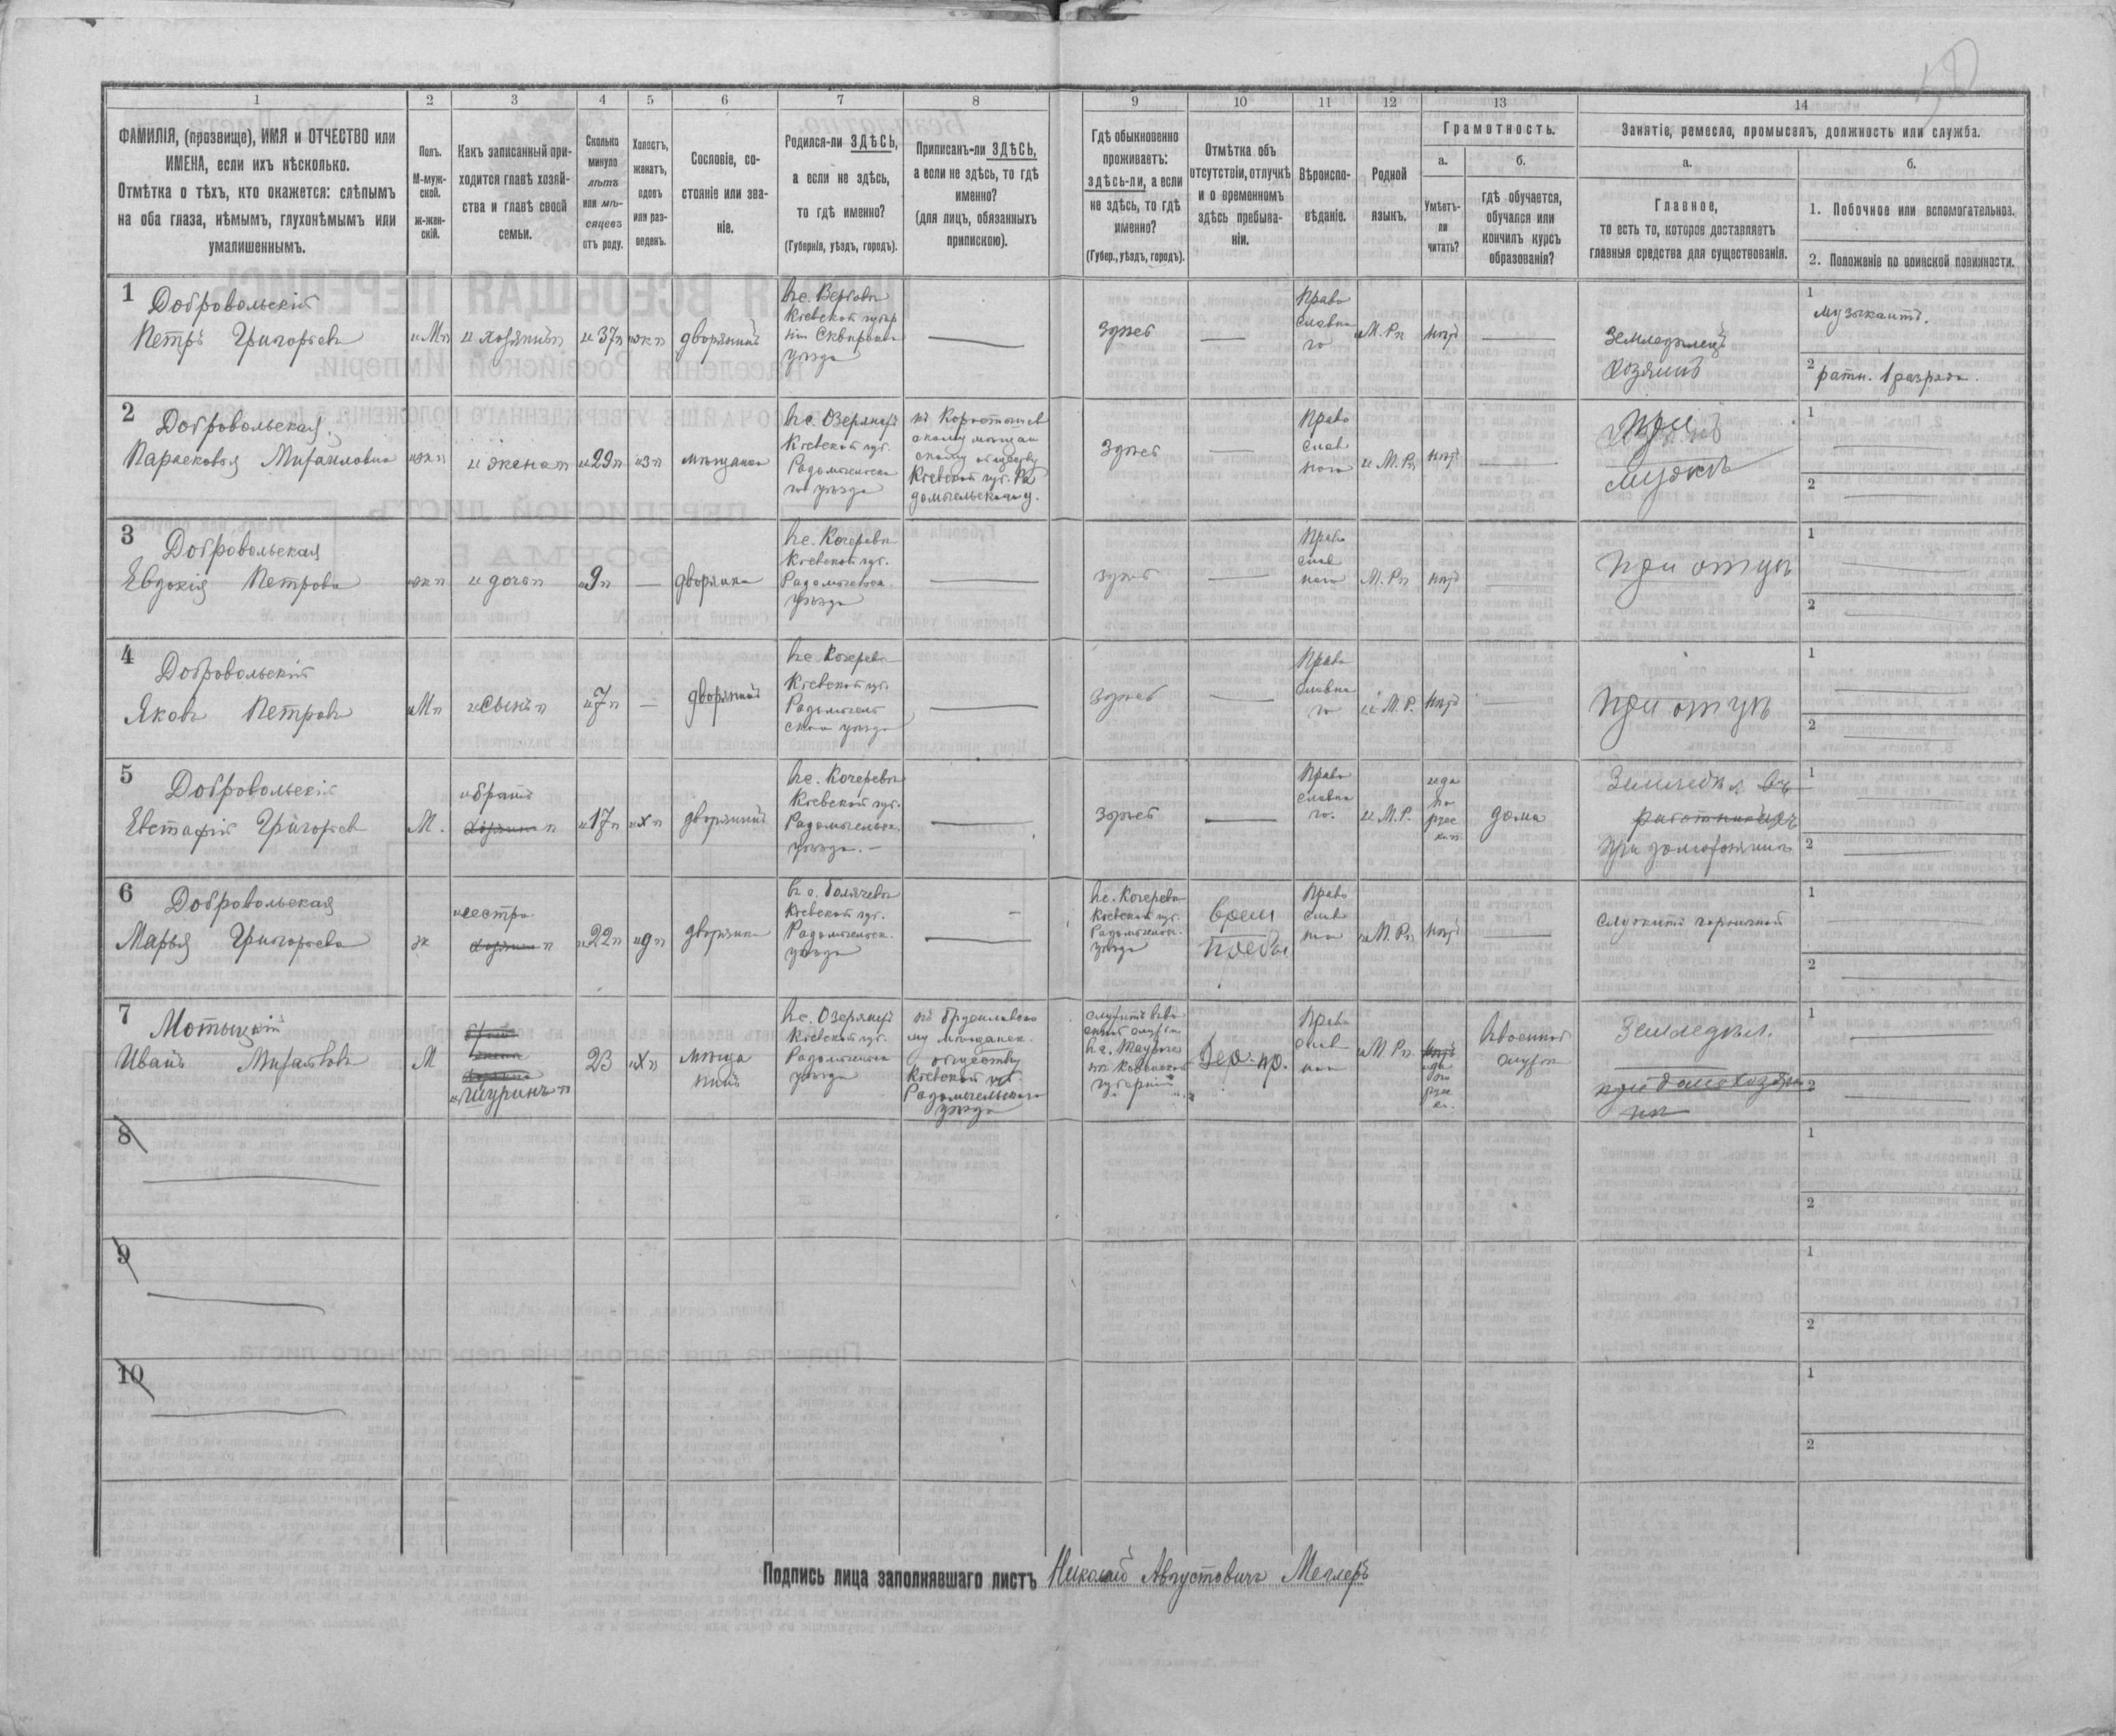 1 2 3 4 5 6 7 8 9 10 11 12 13 14
ФАМИЛІЯ, (прозвище), ИМЯ и ОТЧЕСТВО или
ИМЕНА, если ихъ нѣсколько.
Отмѣтка о тѣхъ, кто окажется: слѣпымъ
на оба глаза, нѣмымъ, глухонѣмымъ или
умалишеннымъ.
Полъ.
М-муж-
ской.
Ж-жен-
скій.
Какъ записанный при-
ходится главѣ хозяй-
ства и главѣ своей
семьи.
Сколько
минуло
лѣтъ
или мѣ-
сяцевъ
отъ роду.
Холостъ,
женатъ,
вдовъ
или раз-
веденъ.
Сословіе, со-
стояніе или зва-
ніе.
Родился-ли ЗДѢСЬ,
а если не здѣсь,
то гдѣ именно?
(Губернія, уѣздъ, городъ).
Приписанъ-ли ЗДѢСЬ,
а если не здѣсь, то гдѣ
именно?
(для лицъ, обязанныхъ
припискою).
Гдѣ обыкновенно
проживаетъ:
здѣсь-ли, а если
не здѣсь, то гдѣ
именно?
(Губер., уѣздъ, городъ).
Отмѣтка объ
отсутствіи, отлучкѣ
и о временномъ
здѣсь пребыва-
ніи.
Вѣроиспо-
вѣданіе.
Родной
языкъ.
Грамотность.
а.
Умѣетъ-
ли
читать?
б.
гдѣ обучается,
обучался или
кончилъ курсъ
образованія?
Занятіе, ремесло, промыселъ, должность или служба.
а.
Главное,
то есть то, которое доставляетъ
главныя средства для существованія.
б.
1. Побочное или вспомогательное.
2. Положеніе по воинской повинности.
1
Добровольскій
Петръ Григорьевъ
"М"
"хозяинъ"
"37"
"ж"
дворянинъ
Кіевской губер
ніи Сквирскаго
уѣзда
здѣсь
Право
славна
го
"М.Р."
нѣтъ
Земледѣлецъ
хозяинъ
1
музыкантъ.
2
ратн. 1 разряда.
2
Добровольская
Парасковья Михайловна
"ж"
"жена"
"29"
"з"
мѣщанка
въ с. Озеряны
Кіевской губ.
Радомысльска
го уѣзда
къ Коростышев
скому мѣщан
скому обществу
Кіевской губ. Ра
домысльскаго у.
здѣсь
Право
слав
ного
"М.Р."
нѣтъ
при
мужѣ
1
2
3
Добровольская
Евдокія Петрова
"ж"
"дочь"
"9"
дворянка
въ с. Кочеревъ
Кіевской губ.
Радомысльск.
уѣзда
здѣсь
Право
слав
ного
М.Р."
нѣтъ
при отцѣ
1
2
4
Добровольскій
Яковъ Петровъ
"М"
"сынъ"
"7"
дворянинъ
въ с. Кочеревъ
Кіевской губ.
Радомысль
скаго уѣзда
здѣсь
Право
славна
го
"М.Р.
нѣтъ
при отцѣ
1
2
5
Добровольскій
Евстафій Григорьев
М.
"братъ
хозяина"
"17"
"х"
дворянинъ
въ с. Кочеревъ
Кіевской губ.
Радомысльск.
уѣзда.
здѣсь
Право
славна
го.
"М.Р.
"да
по
рус
ски"
дома
при домохозяинѣ
1
2
6
Добровольская
Марья Григорьева
ж
"сестра
хозяина"
"22"
"д"
дворянка
Кіевской губ.
Радомысльск.
уѣзда
въ с. Кочеревъ
Кіевской губ.
Радомысльск.
уѣзда
врем
преб.
Право
слав
ная
"М.Р."
нѣтъ
служитъ горничной
1
2
7
Иванъ Михайловъ
М
"шуринъ"
23
"х"
мѣща
нинъ
въ с. Озеряны
Кіевской губ.
Радомысльск
уѣзда
къ Брусиловско
му мѣщанск.
обществу
Кіевской губ
Радомысльскаго
уѣзда
губерніи
Право
слав
ная
"М.Р."
да
по
рус
ск.
Земледѣл.
при домохозяи
нѣ
1
2
8
1
2
9
1
2
10
1
2
Подпись лица заполнявшаго листъ Николай Августовичъ Меллеръ